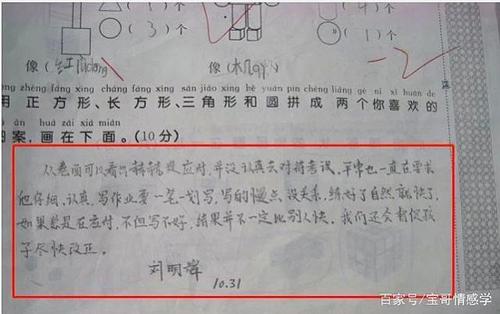 (3)个
(4)个
(1)个
像(红lǜdēng)
像(木几qì人)
-2
yòng zhèng fāng xíng cháng fāng xíng sān jiǎo xíng hé yuán pīn chéng liǎng gè nǐ xǐ huān de
用正方形、长方形、三角形和圆拼成两个你喜欢的
àn huà zài xià miàn
图案,画在下面。(10分)
从卷面可以看出转转是应付,并没认真去对待考试。平常也一直在要求
他仔细、认真,写作业要一笔一划写,写的慢点没关系,练好了自然就快了,
如果总是在应付,不但写不好,结果并不一定比别人快。我们还会督促孩
子尽快改正。
刘明辉
10.31
百家号/宝哥情感学